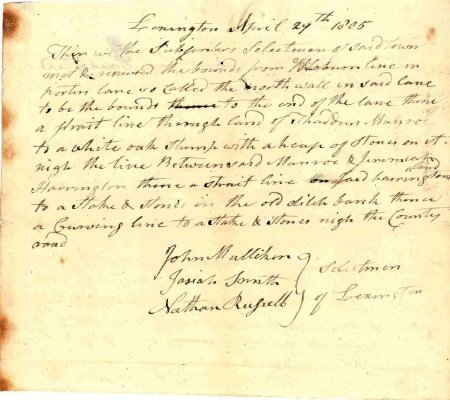 Lexington April 29th 1805
Then we the Subscribers Selectmen of said town
met & renewed the bounds from Woburn line in
porters lane so Called the north wall in said lane
to be the bounds to the end of the lane thence
a strait line through land of Thaddeus Munroe
to a white oak Stump with a heap of Stones on it
nigh the line Between said Munroe & Jeremiah
Harrington thence a strait line on said harringtons land
to a Stake & Stones in the old ditch bank thence
a Curving line to a Stake & Stones nigh the County
road
John Mulliken
Josiah Smith
Nathan Russell
Selectmen
of Lexington